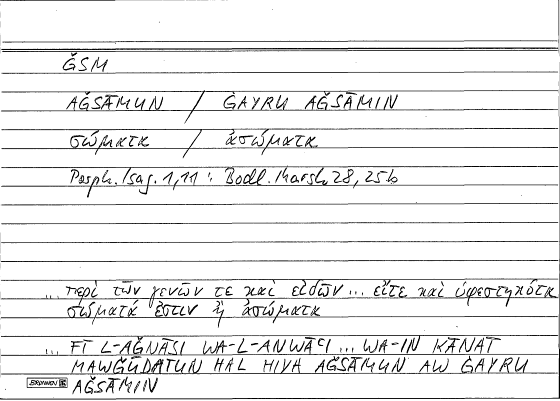 ǦSM
AǦSĀMUN / ĠAYRU AǦSĀMIN
σώματα / ἀσώματα
Porph. Isag. 1,11 : Bodl. Marsh. 28, 25b
... περὶ τῶν γενῶν τε καὶ εἰδῶν ... εἴτε καὶ ὑφεστηκότα
σώματά ἐστιν ἢ ἀσώματα
... FĪ L-AǦNĀSI WA-L-ANWĀʿI ... WA-IN KĀNAT
MAWǦŪDATUN HAL HIYA AǦSĀMUN AW ĠAYRU
BRUNNEN AǦSĀMIN